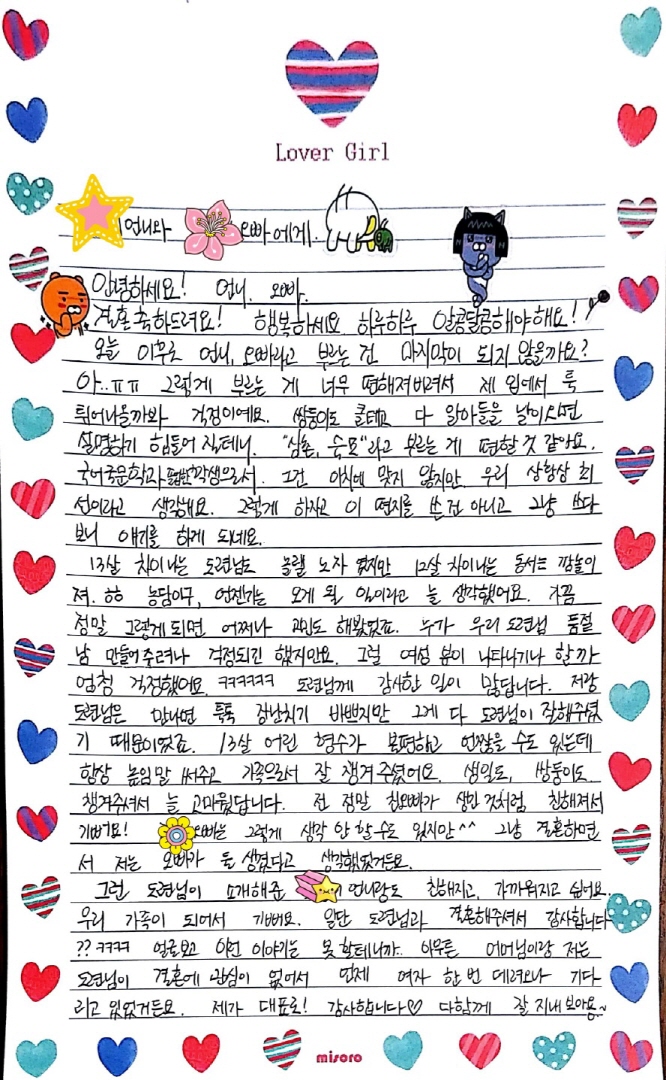 Lover Girl
언니와 오빠에게..
안녕하세요! 언니, 오빠.
결혼 축하드려요! 행복하세요 하루하루 알콩달콩해야해요!
오늘 이후로 언니, 오빠라고 부르는 건 마지막이 되지 않을까요?
아..ㅠㅠ 그렇게 부르는 게 너무 편해져버려서 제 입에서 툭
튀어나올까봐 걱정이예요. 쌍둥이도 클테고 다 알아들을 날이오면
설명하기 힘들어 질테니. "삼촌, 숙모"라고 부르는 게 편할 것 같아요.
국어국문학과 졸업반학생으로서. 그건 이치에 맞지 않지만 우리 상황상 최
선이라고 생각해요. 그렇게 하자고 이 편지를 쓴 건 아니고 그냥 쓰다
보니 얘기를 하게 되네요.
13살 차이나는 도련님도 놀랠 노자 였지만 12살 차이나는 동서는 깜놀이
져. ㅎㅎ 농담이구, 언젠가는 오게 될 일이라고 늘 생각했어요. 가끔
정말 그렇게되면 어쩌나 고민도 해봤었죠. 누가 우리 도련님 품절
남 만들어주려나 걱정되긴 했지만요. 그럴 여성 분이 나타나기나 할까
엄청 걱정했어요. ㅋㅋㅋㅋㅋㅋ 도련님께 감사한 일이 많답니다. 저랑
도련님은 만나면 툭툭 장난치기 바쁘지만 그게 다 도련님이 잘해주셨
기 때문이었죠. 13살 어린 형수가 불편하고 언짢을 수도 있는데
항상 높임말 써주고 가족으로서 잘 챙겨 주셨어요. 생일도, 쌍둥이도
챙겨주셔서 늘 고마웠답니다. 전 정말 친오빠가 생긴 것처럼 친해져서
기뻐요! 오빠는 그렇게 생각 안 할 수도 있지만^^ 그냥 결혼하면
서 저는 오빠가 둘 생겼다고 생각했었거든요.
그런 도련님이 소개해준 언니랑도 친해지고, 가까워지고 싶어요.
우리 가족이 되어서 기뻐요. 일단 도련님과 결혼해주셔서 감사합니다
?? ㅋㅋㅋㅋ 얼굴보고 이런 이야기는 못 할테니까.. 아무튼 어머님이랑 저는
도련님이 결혼에 관심이 없어서 언제 여자 한 번 데려오나 기다
리고 있었거든요. 제가 대표로! 감사합니다♡ 다함께 잘 지내 보아용~
misoro